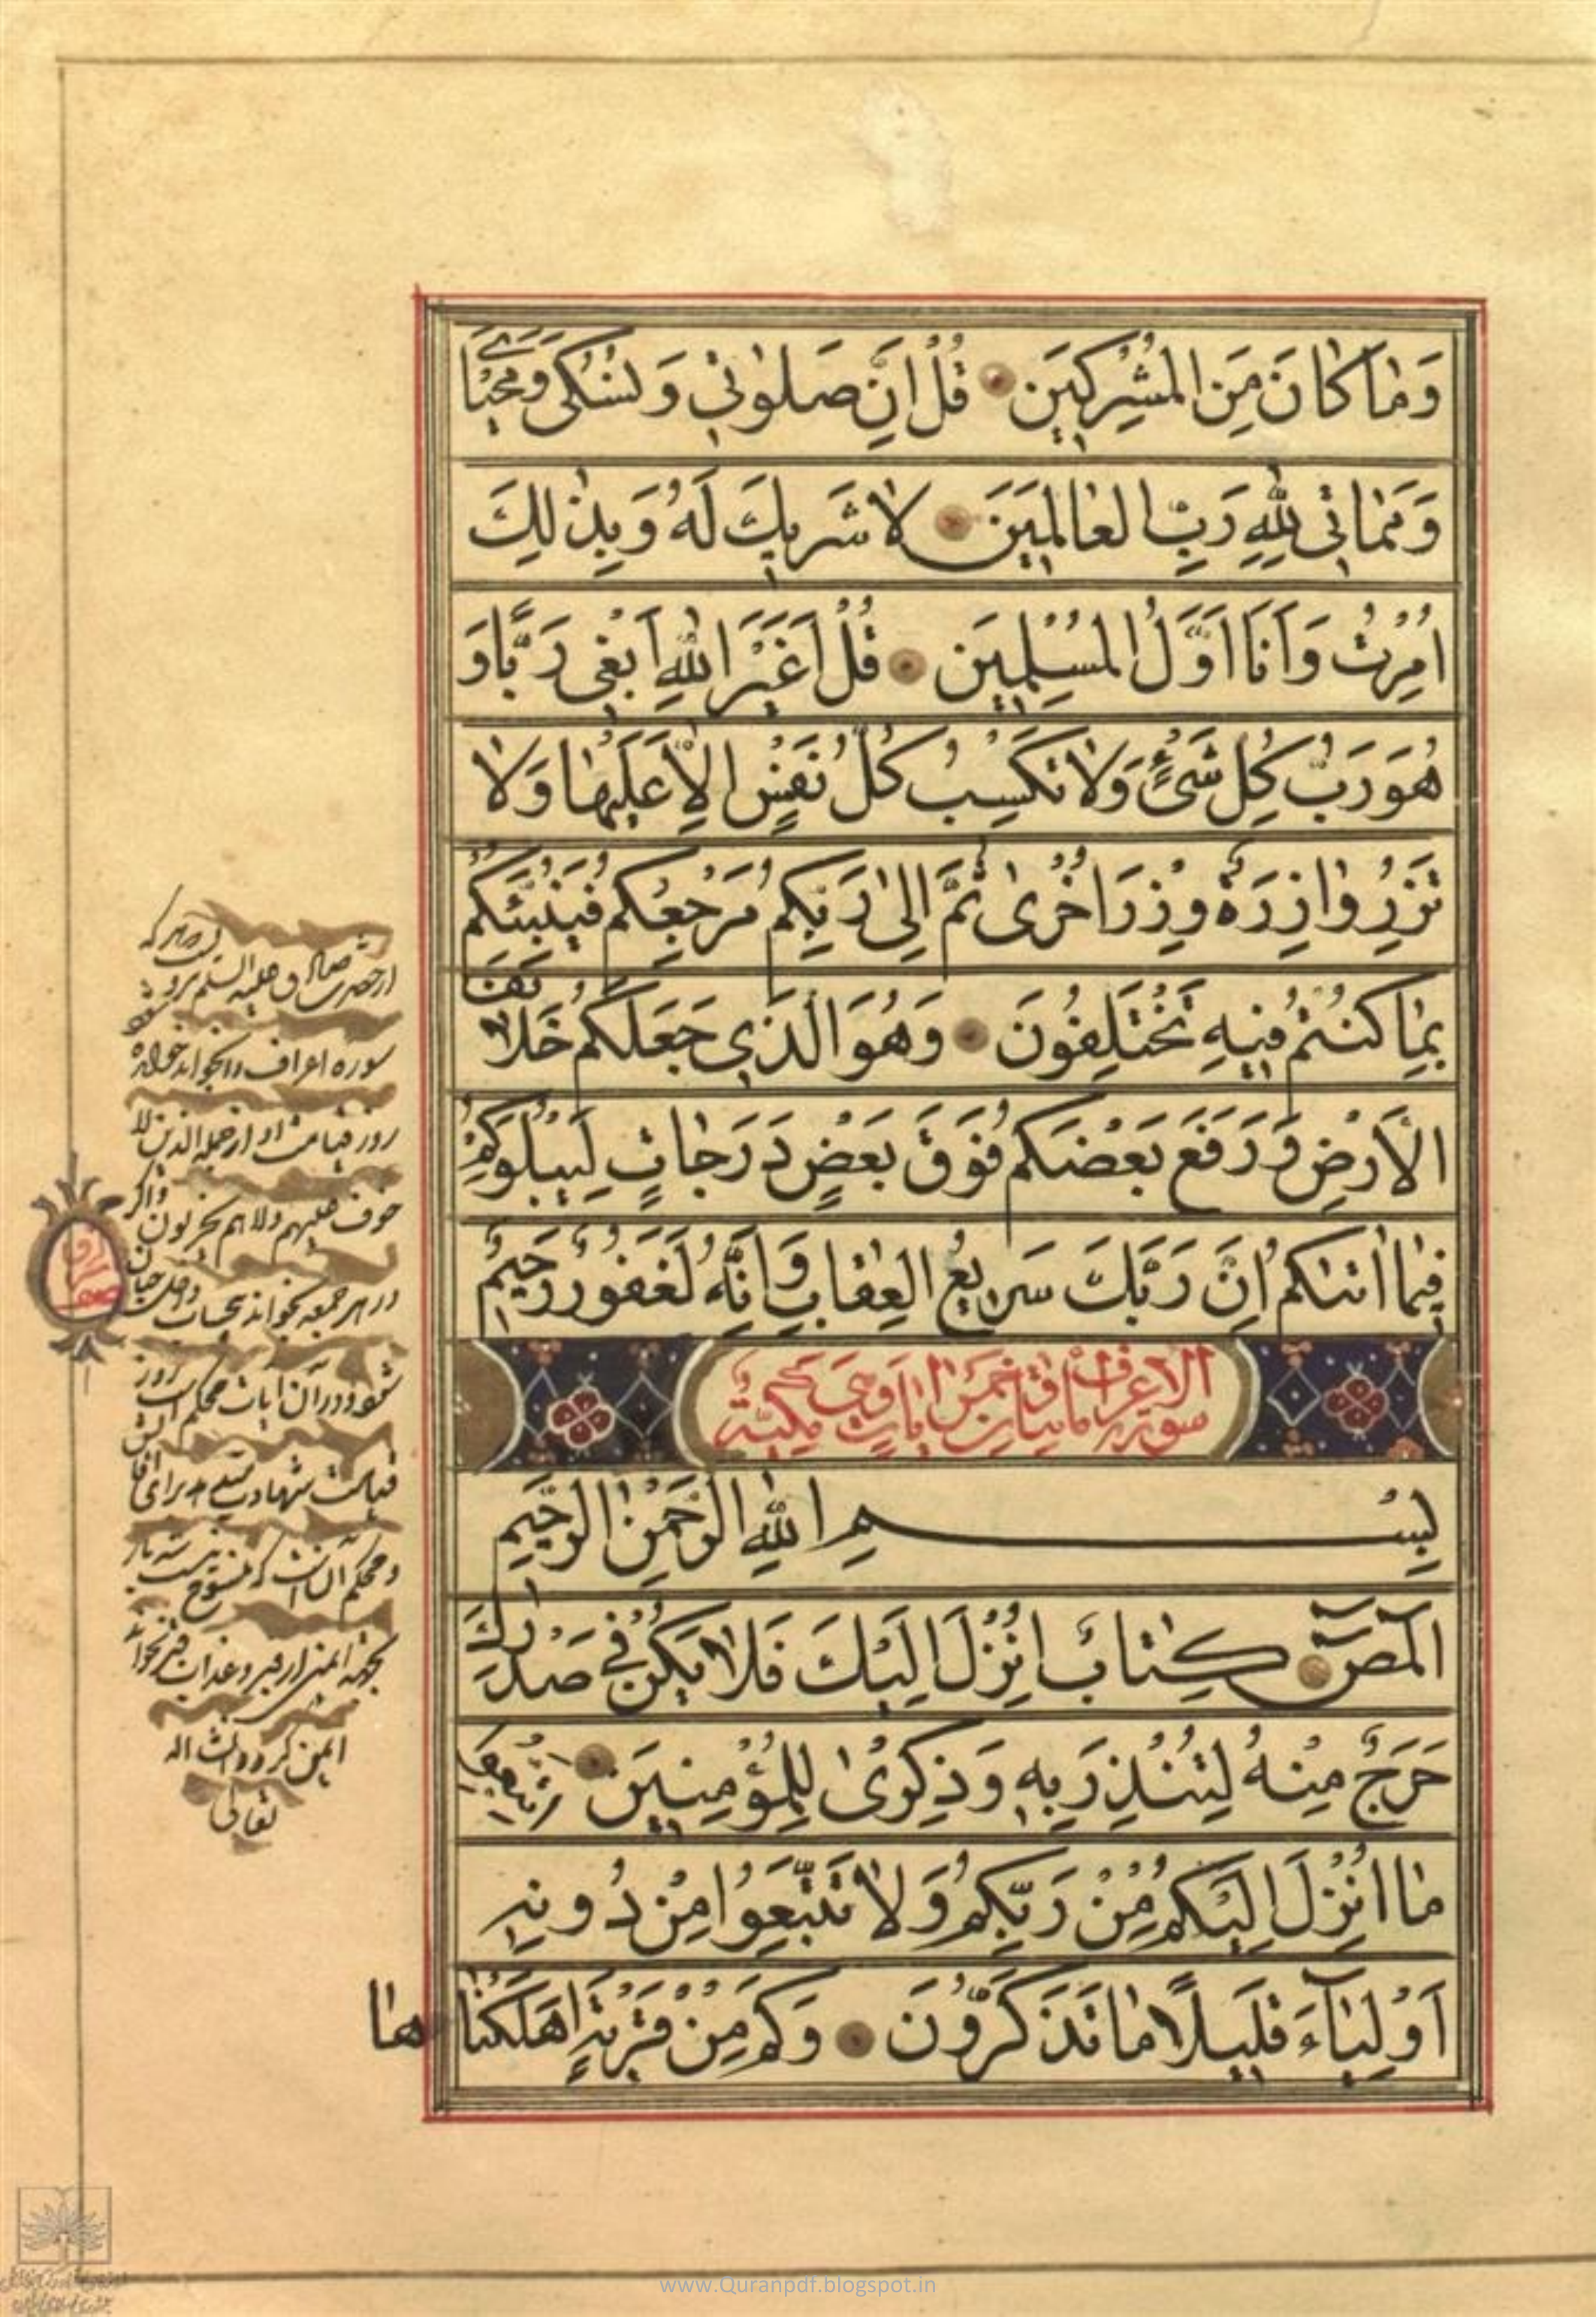 وَمٰا كٰانَ مِنَ المُشْرِكِينَ قُلْ اِنَّ صَلوٰتِي وَنُسُكِى وَمَحْيٰاىَ
وَمَمٰاتِى لِلّٰهِ رَبِّ العٰالَمِينَ لا شَرِيكَ لَهُ وَبِذٰلِكَ
اُمِرْتُ وَاَنَا اَوَّلُ المُسْلِمِينَ قُلْ اَغَيْرَ اللّٰهِ اَبْغِى رَبًّا وَ
هُوَ رَبُّ كُلِّ شَىْءٍ وَلاٰ تَكْسِبُ كُلُّ نَفْسٍ اِلّاٰ عَلَيْهٰا وَلاٰ
تَزِرُ وٰازِرَةٌ وِزْرَ اُخْرىٰ ثُمَّ اِلىٰ رَبِّكُمْ مَرْجِعُكُمْ فَيُنَبِّئُكُمْ
بِمٰا كُنْتُمْ فِيهِ تَخْتَلِفُونَ وَهُوَ الَّذِي جَعَلَكُمْ خَلاٰئِفَ
الْاَرْضِ وَرَفَعَ بَعْضَكُمْ فَوْقَ بَعْضٍ دَرَجٰاتٍ لِيَبْلُوَكُمْ
فِيمٰا اٰتٰىكُمْ اِنَّ رَبَّكَ سَرِيعُ العِقٰابِ وَاِنَّهُ لَغَفُورٌ رَحِيمٌ
سورة الاعراف مايتان و خمس ايات وهى مكية
بِسْمِ اللّٰهِ الرَّحْمٰنِ الرَّحِيمِ
الٓمٓصٓ كِتٰابٌ اُنْزِلَ اِلَيْكَ فَلاٰ يَكُنْ فِي صَدْرِكَ
حَرَجٌ مِنْهُ لِتُنْذِرَ بِهِ وَذِكْرىٰ لِلْمُؤْمِنِينَ اِتَّبِعُوا
مٰا اُنْزِلَ اِلَيْكُمْ مِنْ رَبِّكُمْ وَلاٰ تَتَّبِعُوا مِنْ دُونِهِ
اَوْلِيٰآءَ قَلِيلًا مٰا تَذَكَّرُونَ وَكَمْ مِنْ قَرْيَةٍ اَهْلَكْنٰا
هٰا
سوره اعراف را بخواند
روز قيامت او از جمله الذين لا
خوف عليهم ولا هم يحزنون واكر
در هر جمعه بخواند
شود و در آن آيات محكم است روز
تعالى
www.Quranpdf.blogspot.in